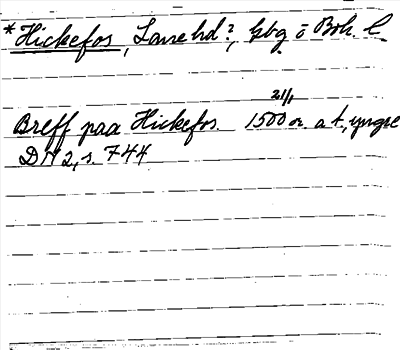 *Hickefos, Lane hd?, Gbg o Boh. l
21/1
Breff paa Hickefos. 1500 or. a t, yngre
DN 2, s. 744